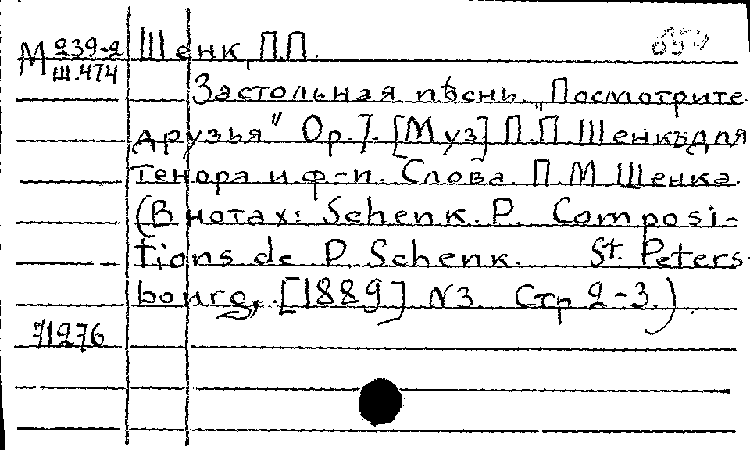 М 239-2 Шенк, П.П. 650
Ш.474
Застольная пѣснь. „Посмотрите
друзья" Ор.7. [Муз] П.П. Шенкъ для
тенора и ф-п. Слова П.М Шенка.
(В нотах: Schenk. P. Composi-
tions de P. Schenk. St. Peters-
bourg. [1889] N3. Стр 2-3.)
71276